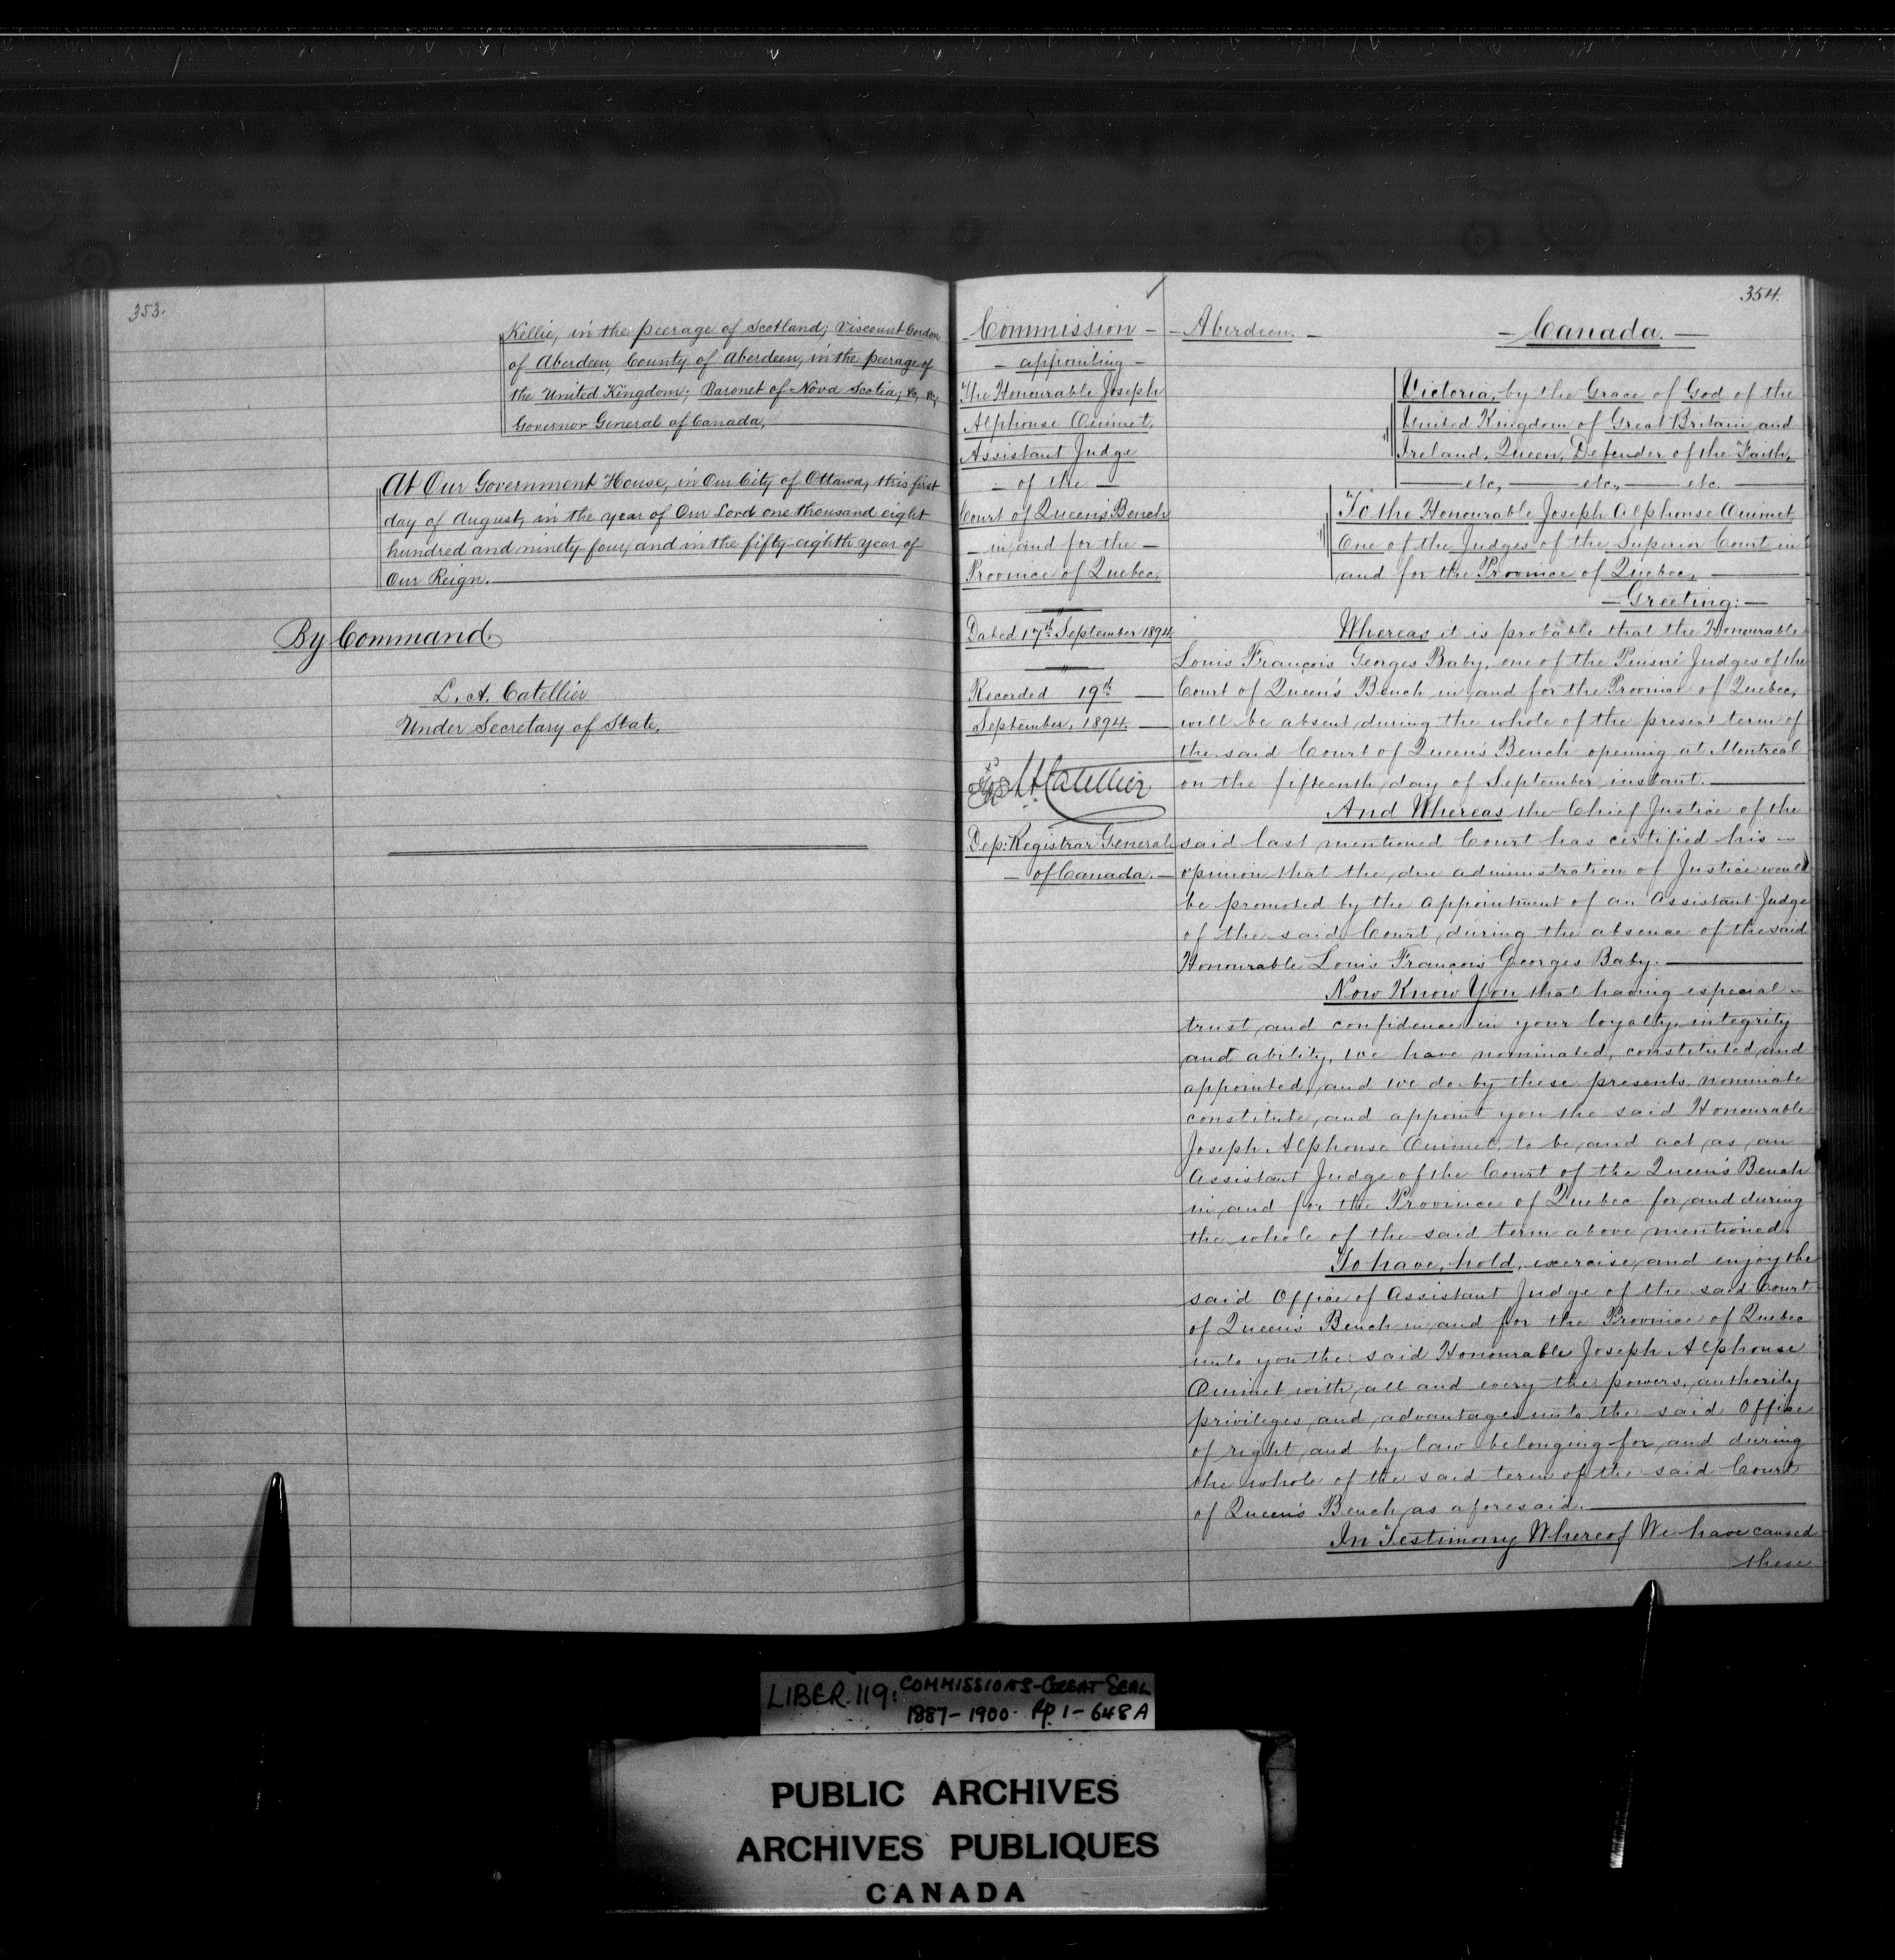 353.
Kellie, in the peerage of Scotland; Viscount Gordon
of Aberdeen, County of Aberdeen, in the peerage of
the United Kingdom; Baronet of Nova Scotia; &c, &c;
Governor General of Canada,
At Our Government House, in Our City of Ottawa, this first
day of August, in the year of Our Lord one thousand eight
hundred and ninety-four, and in the fifty-eighth year of
Our Reign.
By Command.
L. A. Catellier
Under Secretary of State.
354.
Commission
appointing
The Honourable Joseph
Alphonse Ouimet,
Assistant Judge
of the
Court of Queen's Bench
in and for the
Province of Quebec.
Dated 17th September 1894.
Recorded 19th
September, 1894.
Catellier
Dep: Registrar General
of Canada.
Aberdeen.
Canada.
Victoria, by the Grace of God of the
United Kingdom of Great Britain and
Ireland, Queen, Defender of the Faith,
etc, etc, etc.
To the Honourable Joseph Alphonse Ouimet,
One of the Judges of the Superior Court in
and for the Province of Quebec,
Greeting:
Whereas it is probable that the Honourable
Louis François Georges Baby, one of the Puisné Judges of the
Court of Queen's Bench in and for the Province of Quebec,
will be absent during the whole of the present term of
the said Court of Queen's Bench opening at Montreal
on the fifteenth day of September instant.
And Whereas the Chief Justice of the
said last mentioned Court has certified his
opinion that the due administration of Justice would
be promoted by the appointment of an Assistant Judge
of the said Court during the absence of the said
Honourable Louis François Georges Baby.
Now Know You that having especial
trust and confidence in your loyalty, integrity
and ability, We have nominated, constituted and
appointed, and We do by these presents nominate
constitute and appoint you the said Honourable
Joseph Alphonse Ouimet, to be and act as an
Assistant Judge of the Court of the Queen's Bench
in and for the Province of Quebec for and during
the whole of the said term above mentioned.
To have, hold, exercise and enjoy the
said Office of Assistant Judge of the said Court
of Queen's Bench in and for the Province of Quebec
unto you the said Honourable Joseph Alphonse
Ouimet with all and every the powers, authority
privileges and advantages unto the said Office
of right and by law belonging for and during
the whole of the said term of the said Court
of Queen's Bench as aforesaid.
In Testimony Whereof We have caused
these
LIBER. 119: COMMISSIONS-GREAT SEAL
1887-1900. Pp. 1-648A
PUBLIC ARCHIVES
ARCHIVES PUBLIQUES
CANADA